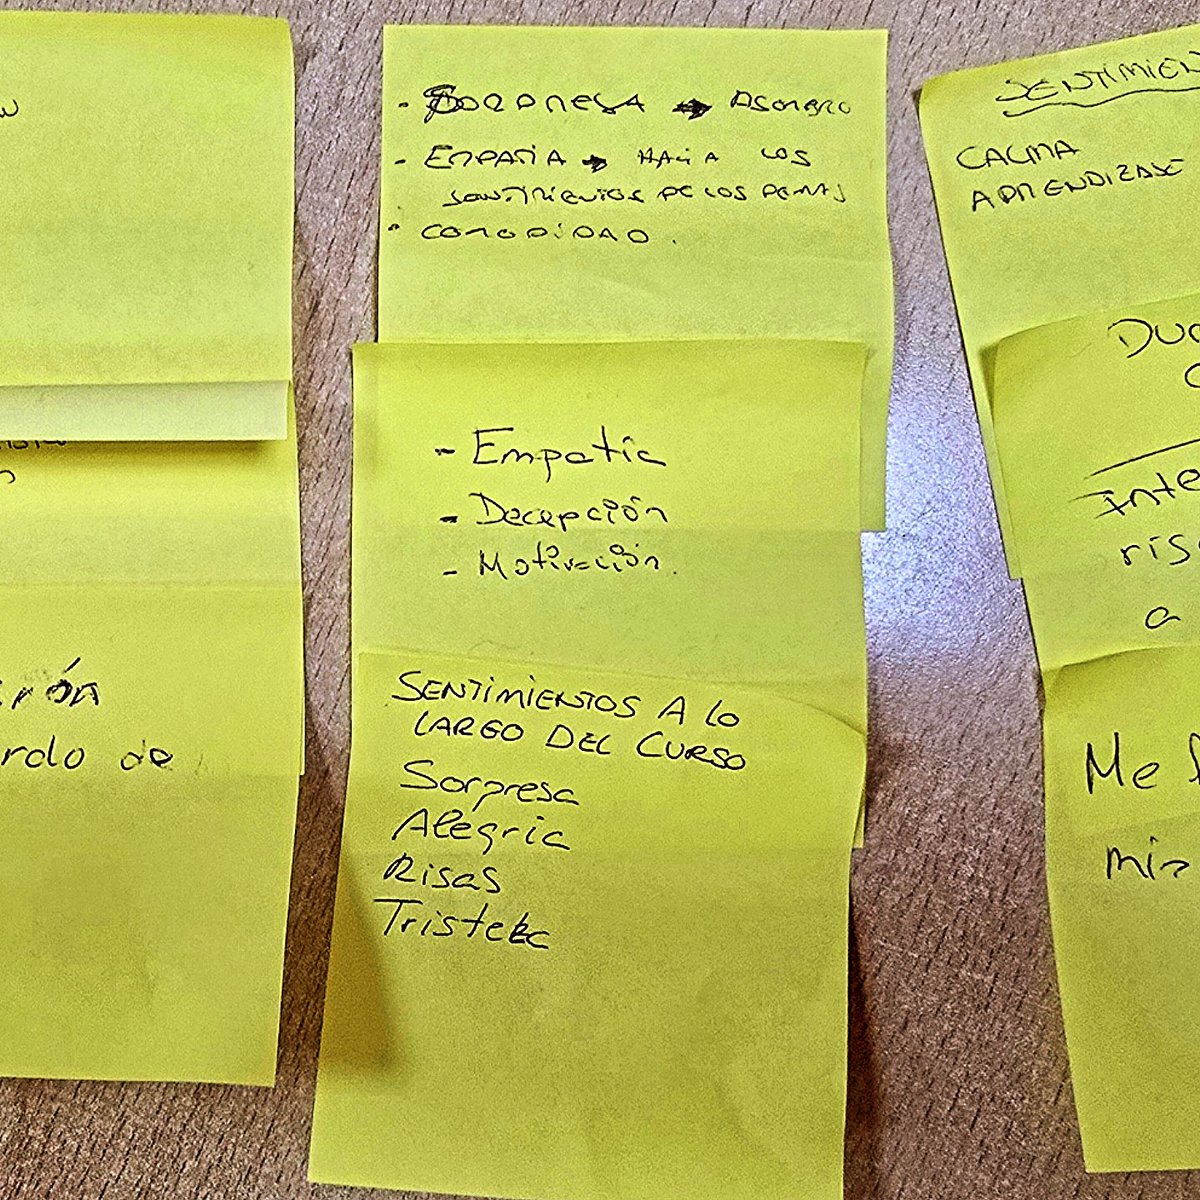 · SORPRESA → ASOMBRO
- EMPATIA → HACIA LOS
SENTIMIENTOS DE LOS DEMAS
· COMODIDAD.
- Empatía
- Decepción
- Motivación.
SENTIMIENTOS A LO
LARGO DEL CURSO
Sorpresa
Alegria
Risas
Tristeza
rolo de
SENTIMIEN
CALMA
APRENDIZAJE
DUD
Inte
ris
a
Me